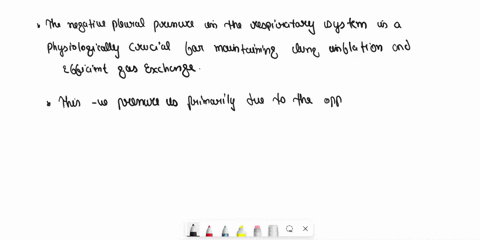 • The negative pleural pressure in the respiratory system is a
physiologically crucial for maintaining lung inflation and
Efficient gas exchange.
• This -ve pressure is primarily due to the opp